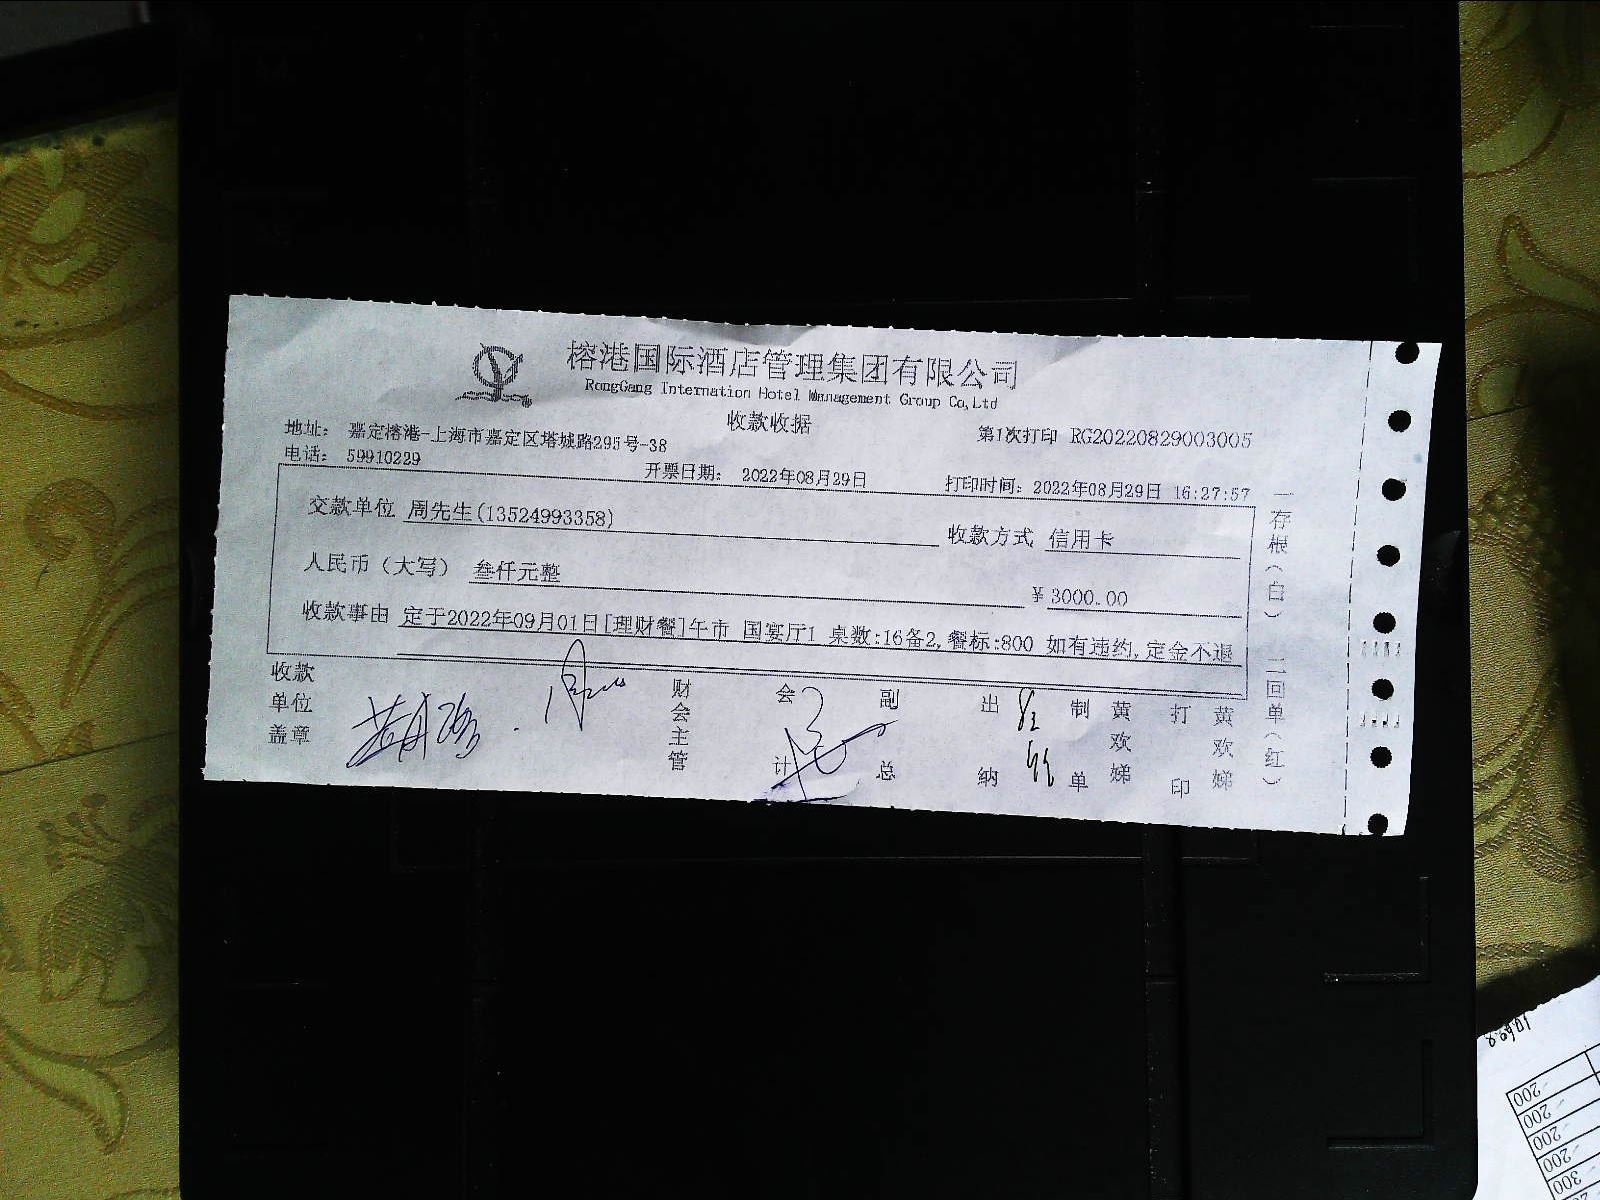 榕港国际酒店管理集团有限公司
RongGang Internation Hotel Management Group Co,Ltd
收款收据
地址： 嘉定榕港-上海市嘉定区塔城路295号-38
第1次打印 RG20220829003005
电话： 59910229
开票日期： 2022年08月29日
打印时间：2022年08月29日 16:27:57
交款单位 周先生(13524993358)
收款方式 信用卡
人民币（大写） 叁仟元整
￥3000.00
收款事由 定于2022年09月01日[理财餐]午市 国宴厅1 桌数:16备2,餐标:800 如有违约,定金不退
收款单位盖章
财会主管
会计
副总
出纳
制单
黄欢娣
打印
黄欢娣
一存根（白） 二回单（红）
200
200
200
200
300